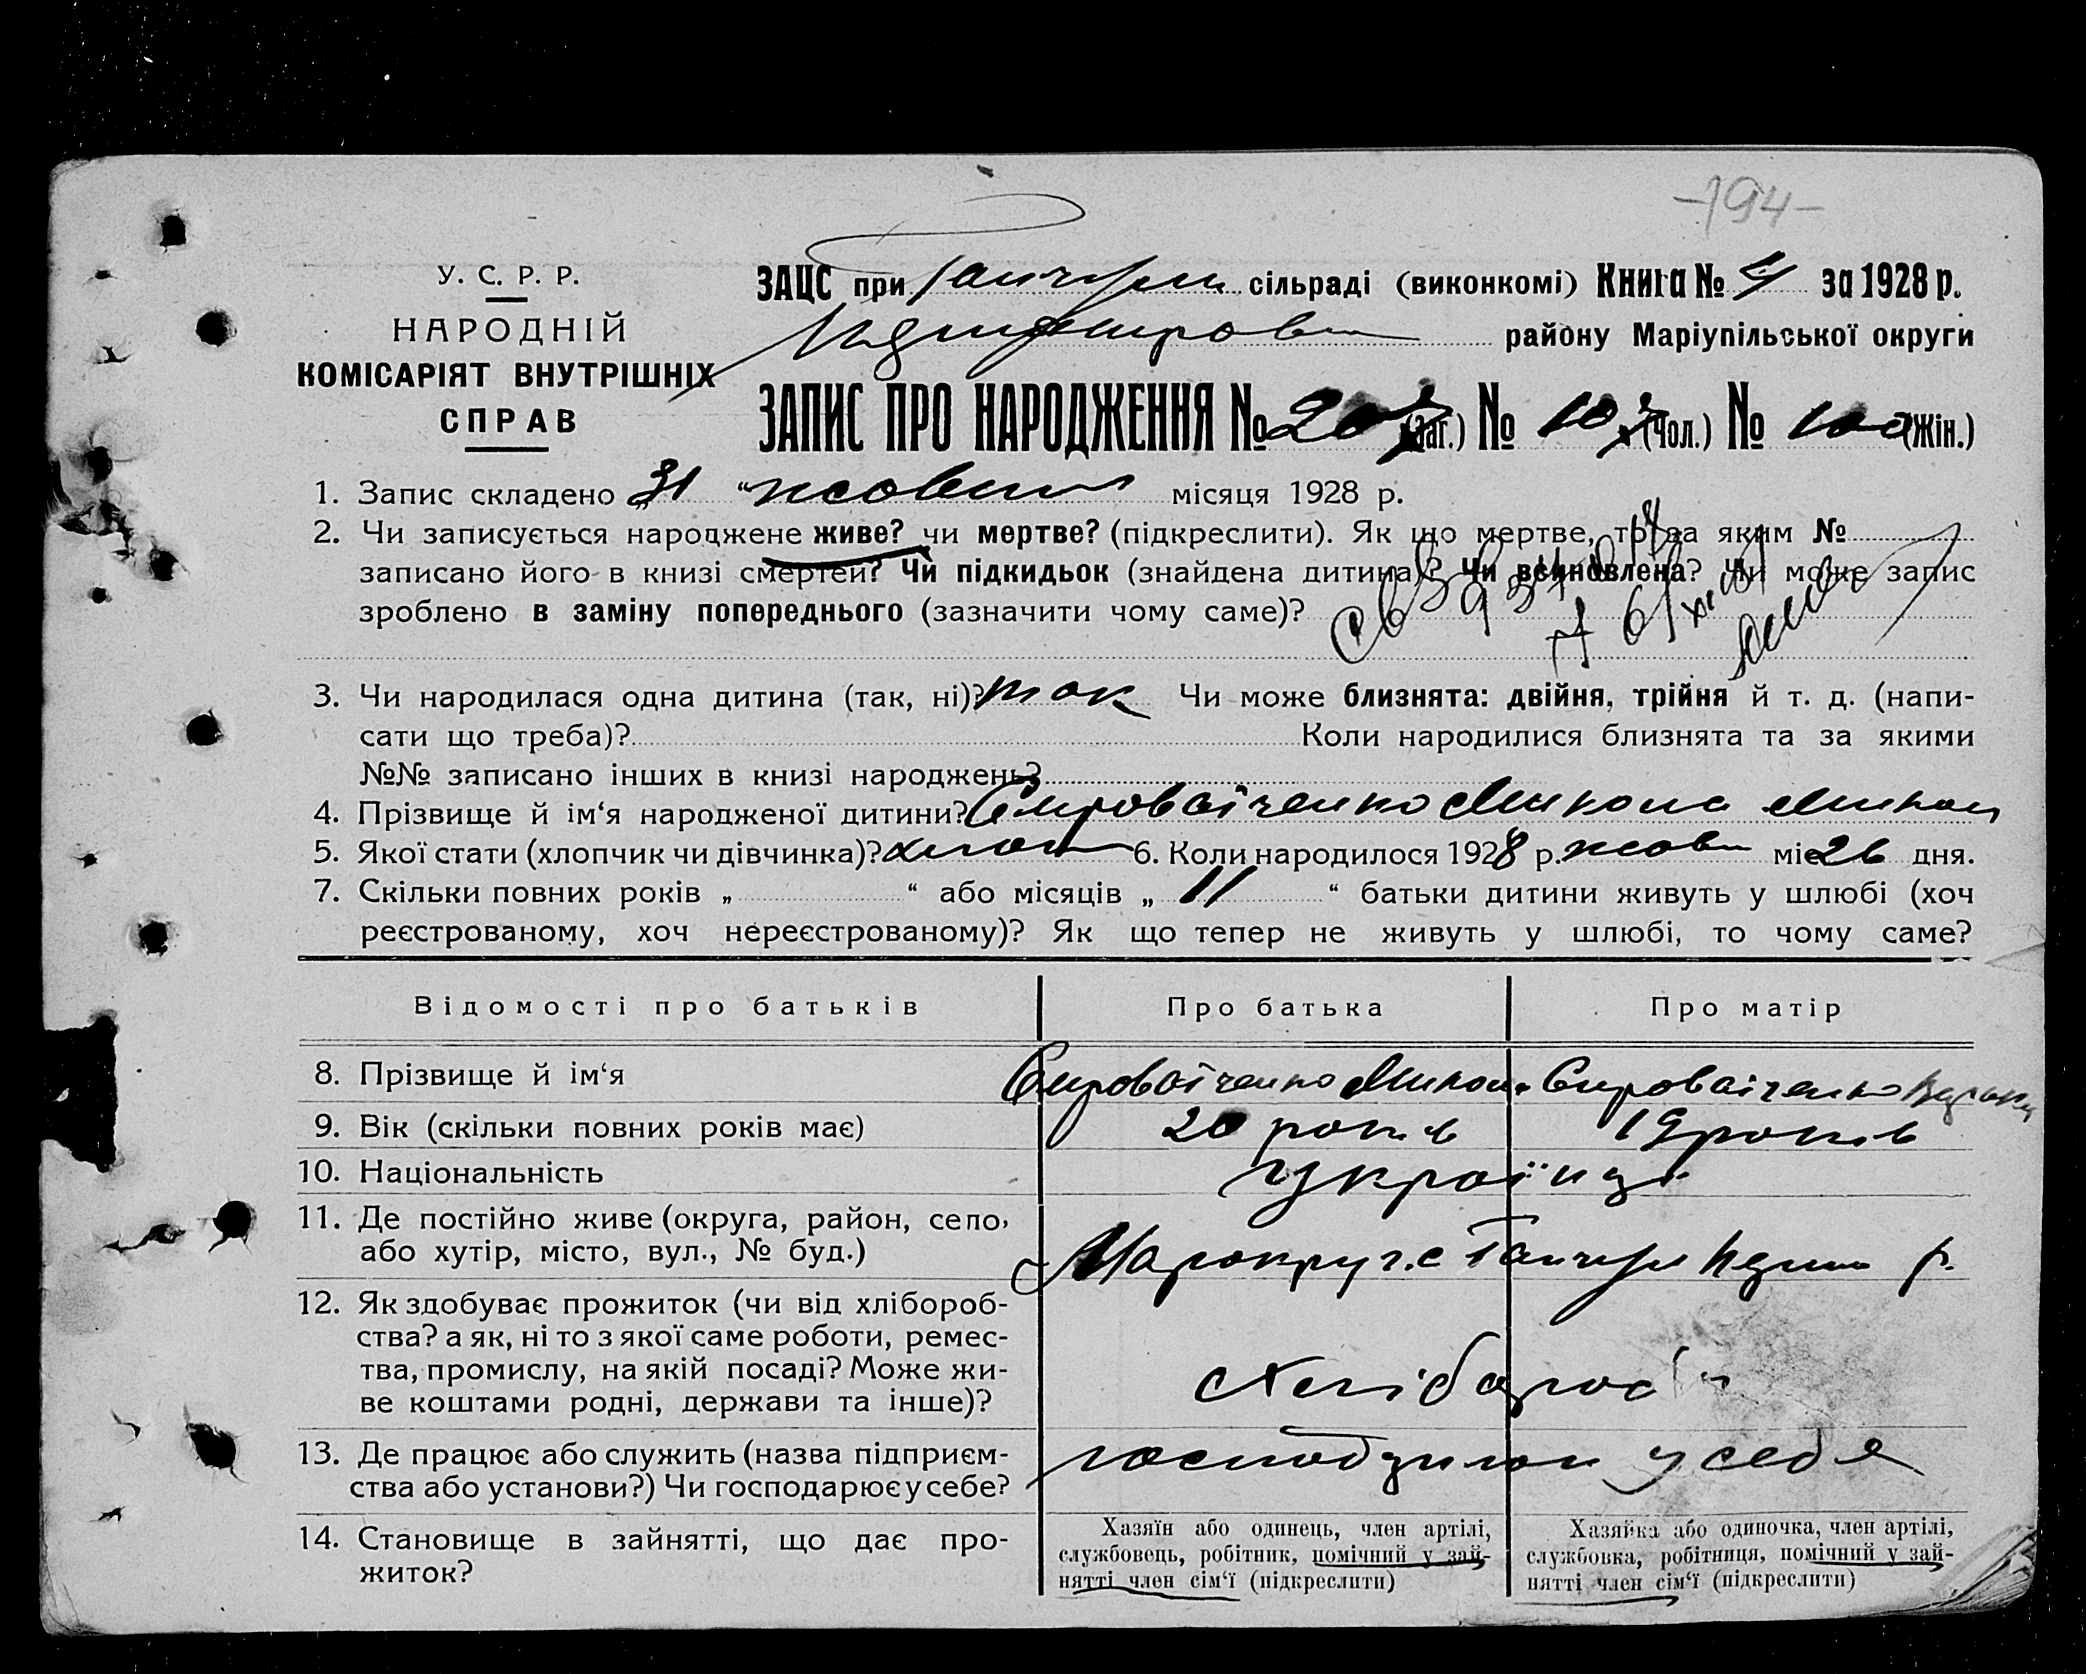 -194-
У. С. Р. Р.
НАРОДНІЙ
КОМІСАРІЯТ ВНУТРІШНІХ
СПРАВ
ЗАЦС при сільраді (виконкомі) Книга № за 1928 р.
району Маріупільської округи
ЗАПИС ПРО НАРОДЖЕННЯ № (Заг.) № (Чол.) № (Жін.)
1. Запис складено „31 “ місяця 1928 р.
2. Чи записується народжене живе? чи мертве? (підкреслити). Як що мертве, то за яким №
записано його в книзі смертей? Чи підкидьок (знайдена дитина)? Чи всиновлена? Чи може запис
зроблено в заміну попереднього (зазначити чому саме)?
3. Чи народилася одна дитина (так, ні)? так Чи може близнята: двійня, трійня й т. д. (напи-
сати що треба)? Коли народилися близнята та за якими
№№ записано інших в книзі народжень?
4. Прізвище й ім‘я народженої дитини? Сироватченко Микола Микол
5. Якої стати (хлопчик чи дівчинка)? хлоп 6. Коли народилося 1928 р. жовт міс 26 дня.
7. Скільки повних років „ “ або місяців „ 11 “ батьки дитини живуть у шлюбі (хоч
реєстрованому, хоч нереєстрованому)? Як що тепер не живуть у шлюбі, то чому саме?
Відомості про батьків Про батька Про матір
8. Прізвище й ім‘я Сироватченко Микола Сироватченко
9. Вік (скільки повних років має) 20 років 19 років
10. Національність українці
11. Де постійно живе (округа, район, село,
або хутір, місто, вул., № буд.)
12. Як здобуває прожиток (чи від хлібороб-
ства? а як, ні то з якої саме роботи, ремес-
тва, промислу, на якій посаді? Може жи-
ве коштами родні, держави та інше)?
13. Де працює або служить (назва підприєм-
ства або установи?) Чи господарює у себе? у себя
14. Становище в зайнятті, що дає про-
житок?
Хазяїн або одинець, член артілі,
службовець, робітник, помічний у зай-
нятті член сім‘ї (підкреслити)
Хазяйка або одиночка, член артілі,
службовка, робітниця, помічний у зай-
нятті член сім‘ї (підкреслити)